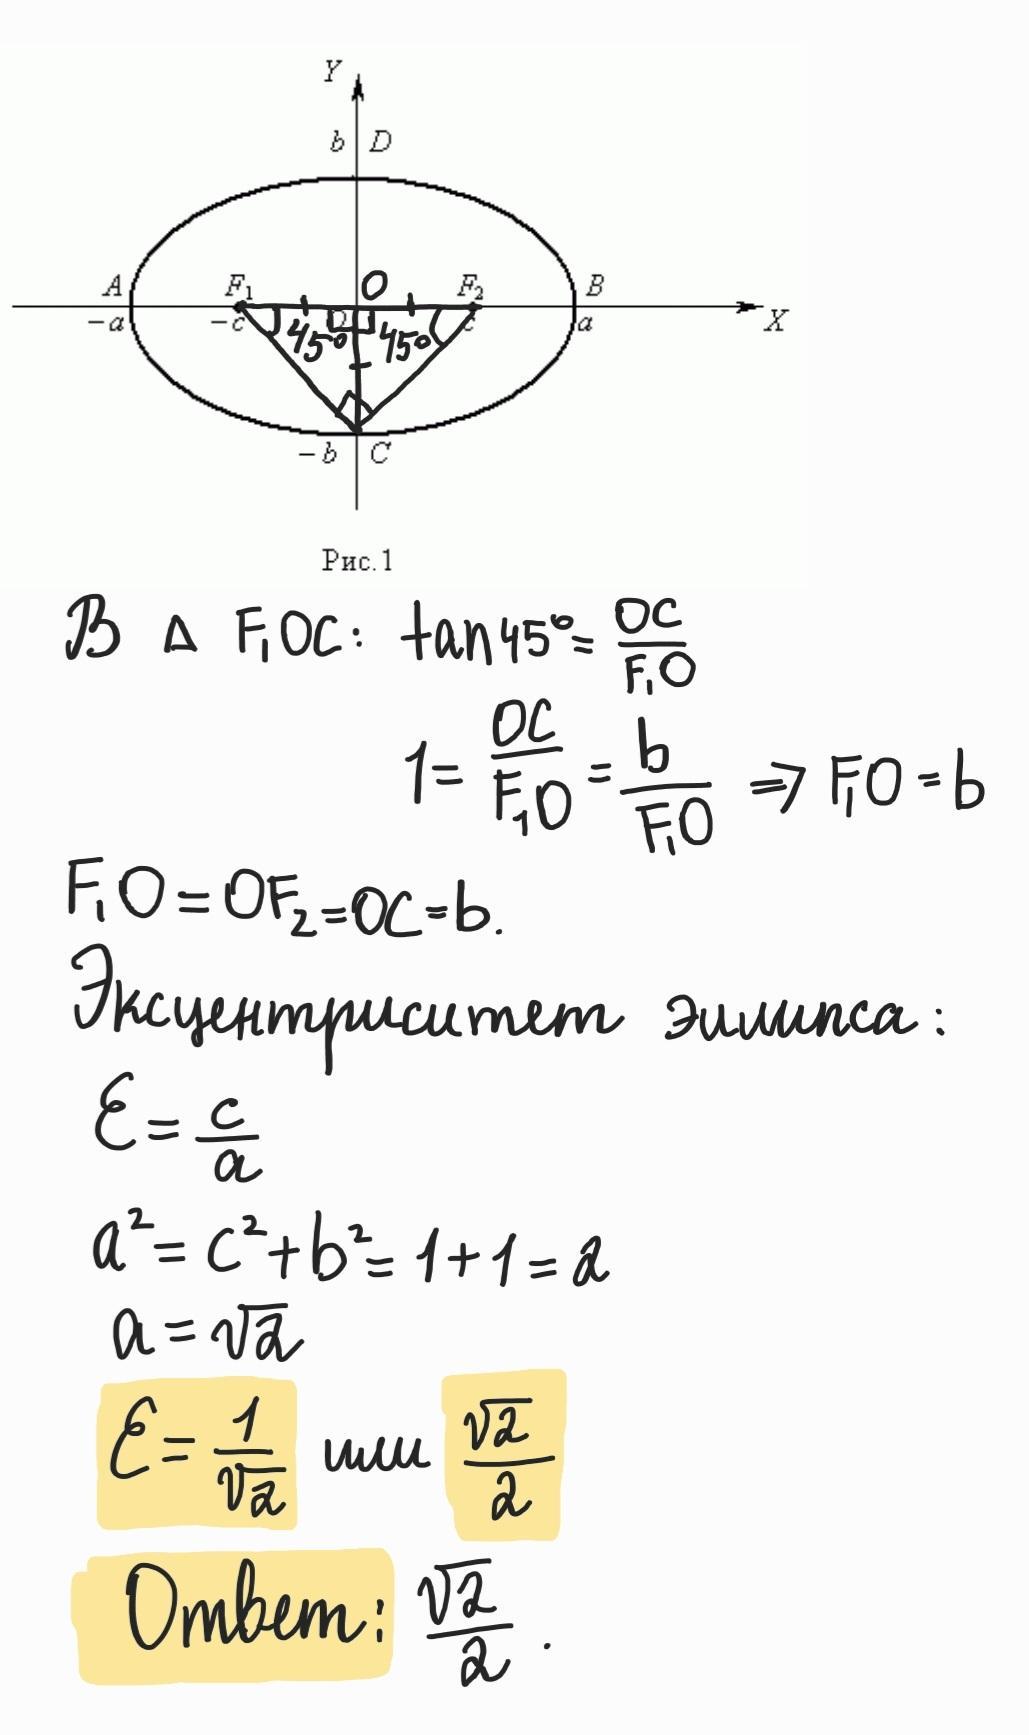 Y
b D
O
A F₁ F₂ B
-a -c 45° 45° c a X
-b C
Рис.1
В Δ F₁OC: tan45°= OC/F₁O
1= OC/F₁O = b/F₁O ⇒ F₁O = b
F₁O = OF₂ = OC = b.
Эксцентриситет эилипса:
ℰ = c/a
a² = c² + b² = 1 + 1 = 2
a = √2
ℰ = 1/√2 или √2/2
Ответ: √2/2.